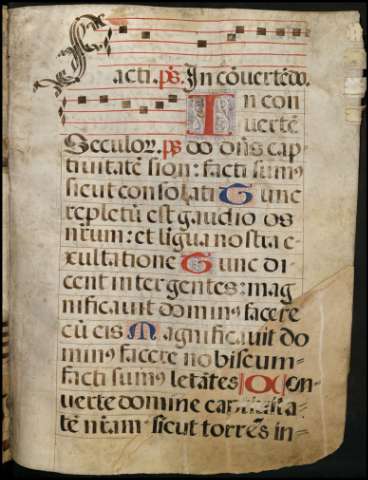 Facti. ps. In cōvertēdo.
In con
vertē
Seculor. ps do dn̄s cap
tivitatē sion: facti sumꝰ
sicut consolati Tunc
repletū est gaudio os
nr̄um: et ligua nostra e-
xultatione Tunc di
cent inter gentes: mag
nificavit dominꝰ facere
cū eis Magnificavit do
minꝰ facere nobiscum=
facti sumꝰ letātes Con=
verte domine captivita=
tē nr̄am sicut torrēs in=